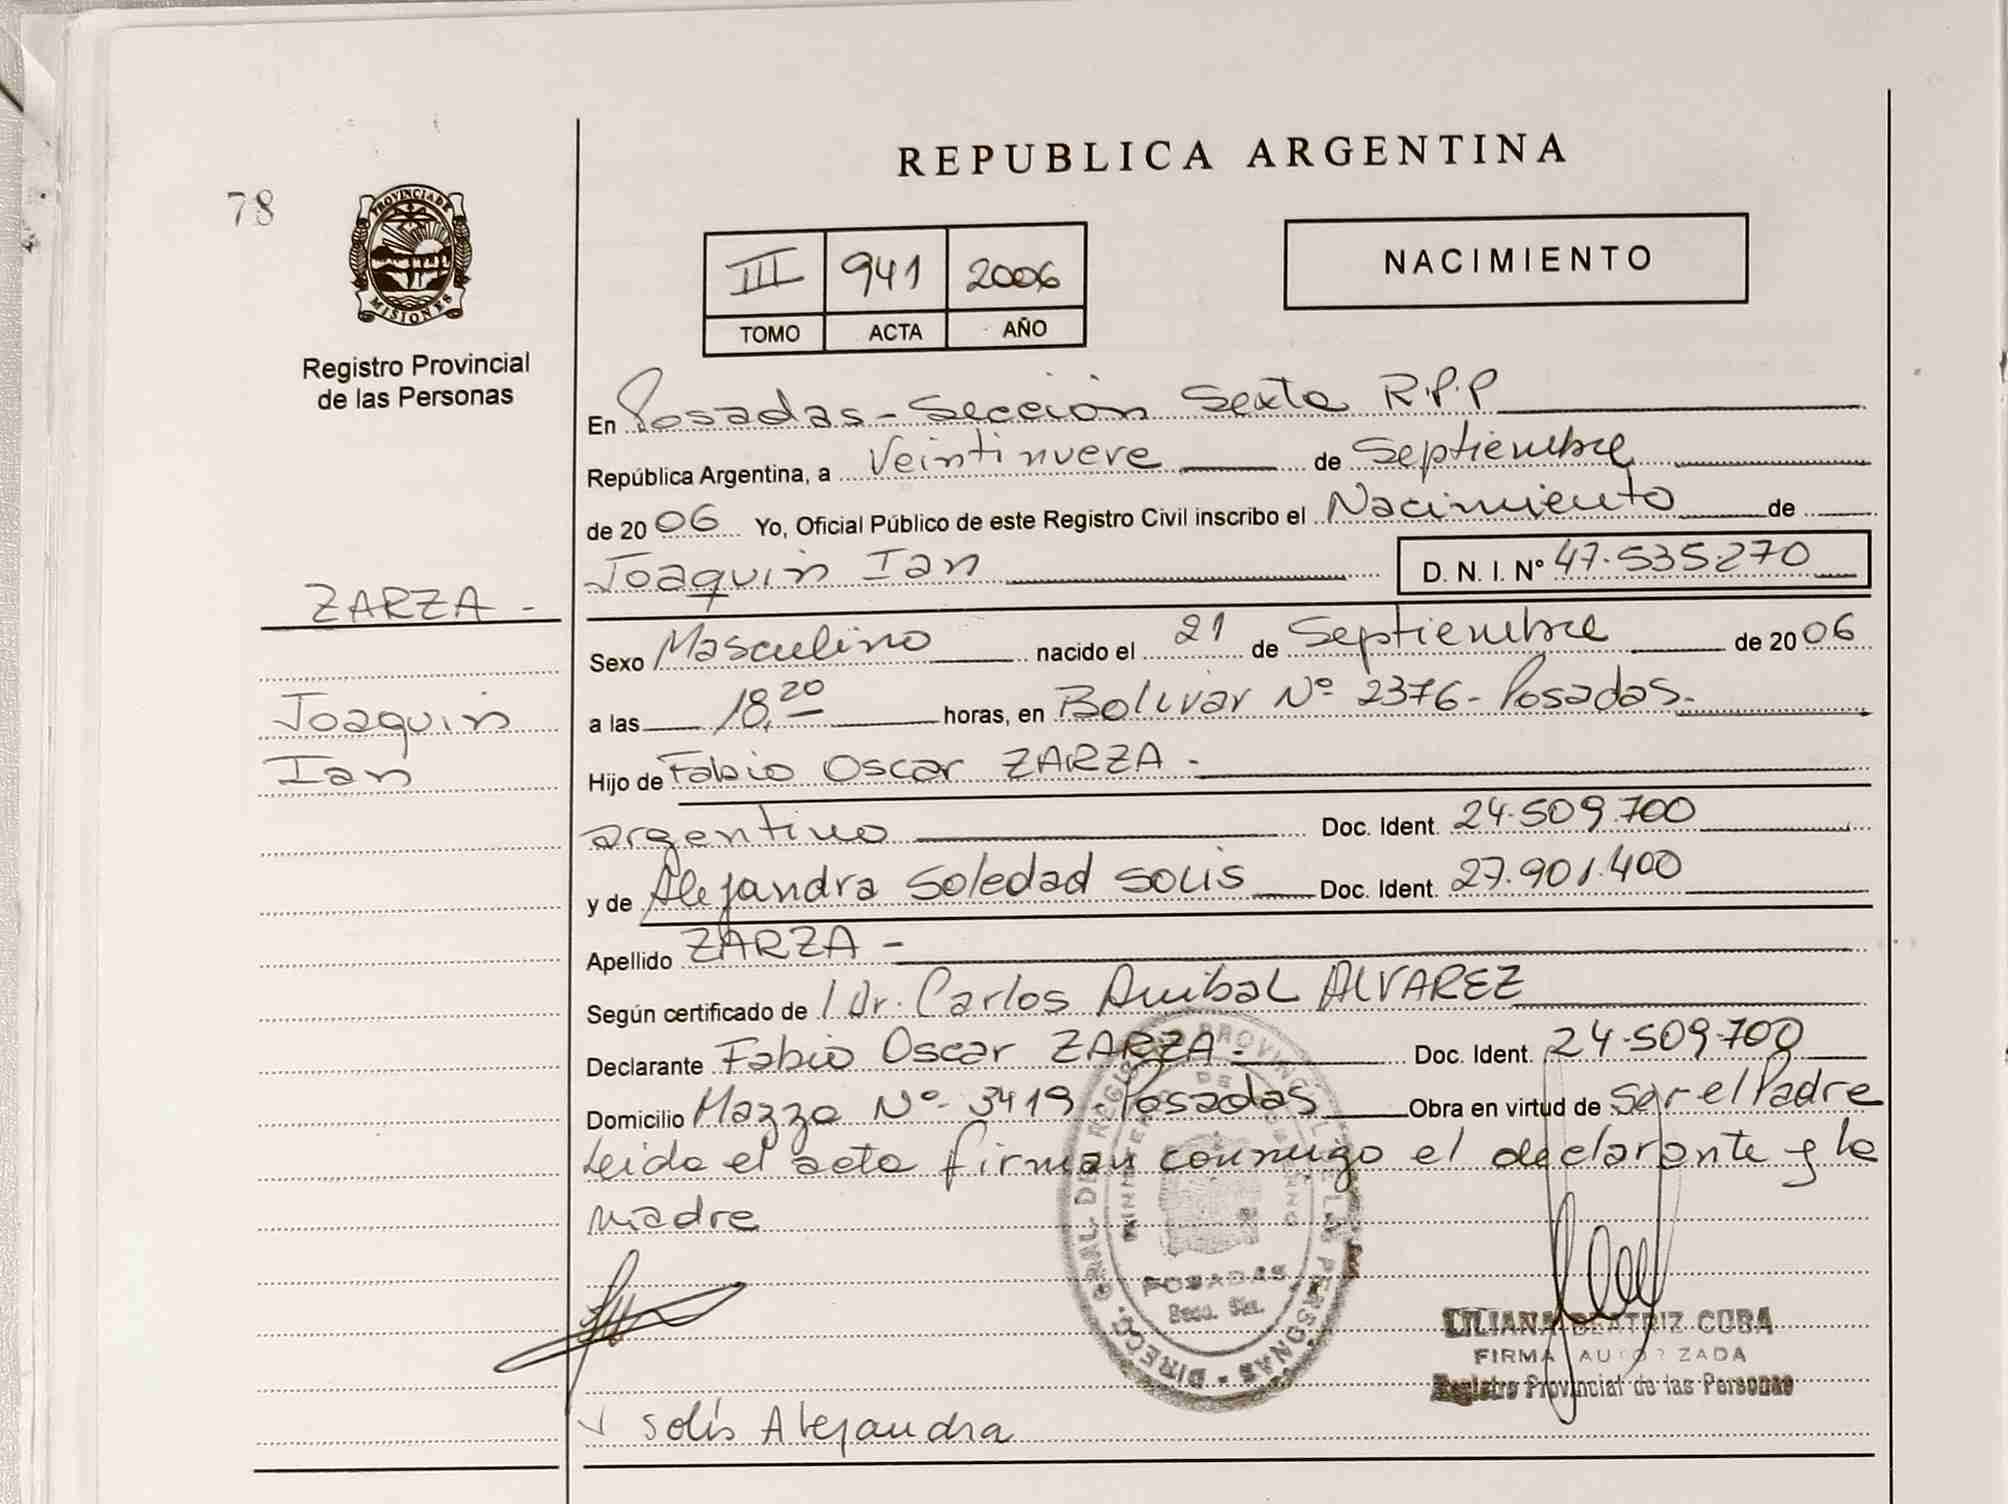 REPUBLICA ARGENTINA
78
PROVINCIA DE
MISIONES
Registro Provincial
de las Personas
III 941 2006
TOMO ACTA AÑO
NACIMIENTO
En Posadas - Sección Sexta R.P.P
República Argentina, a Veintinueve de Septiembre
de 2006 Yo, Oficial Público de este Registro Civil inscribo el Nacimiento de
Joaquin Ian D. N. I. Nº 47.535.270
ZARZA -
Joaquin
Ian
Sexo Masculino nacido el 21 de Septiembre de 2006
a las 18,20 horas, en Bolivar Nº 2376 - Posadas.
Hijo de Fabio Oscar ZARZA -
argentino Doc. Ident. 24.509.700
y de Alejandra Soledad SOLIS Doc. Ident. 27.901.400
Apellido ZARZA -
Según certificado de Dr. Carlos Anibal ALVAREZ
Declarante Fabio Oscar ZARZA - Doc. Ident. 24.509.700
Domicilio Mazza Nº 3419 - Posadas Obra en virtud de ser el Padre
Leida el acta firman conmigo el declarante y la
madre
DIRECC. GRAL. DE REGISTRO PROVINCIAL DE LAS PERSONAS
MINISTERIO DE GOBIERNO
POSADAS
Secc. 6ta.
LILIANA BEATRIZ CUBA
FIRMA AUTORIZADA
Registro Provincial de las Personas
Solís Alejandra